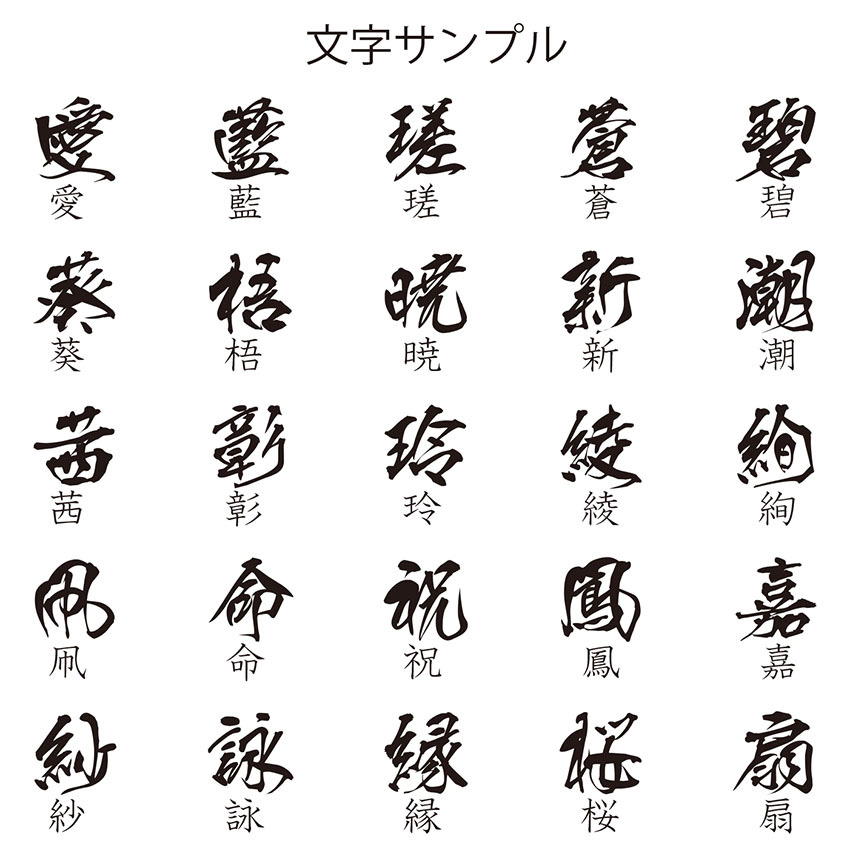 文字サンプル
愛 藍 瑳 蒼 碧
愛 藍 瑳 蒼 碧
葵 梧 暁 新 潮
葵 梧 暁 新 潮
茜 彰 玲 綾 絢
茜 彰 玲 綾 絢
凧 命 祝 鳳 嘉
凧 命 祝 鳳 嘉
紗 詠 縁 桜 扇
紗 詠 縁 桜 扇